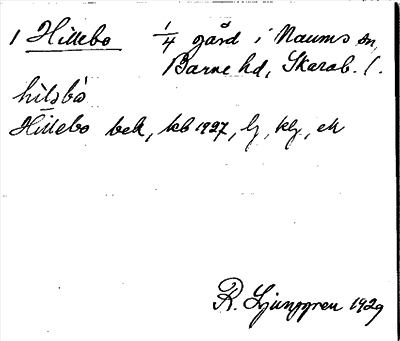 1 Hillebo 1/4 gård i Naums sn,
Barne hd, Skarab. l.
hìlsbò
Hillebo bek, kb 1927, lj, klj, ek
R. Ljunggren 1929